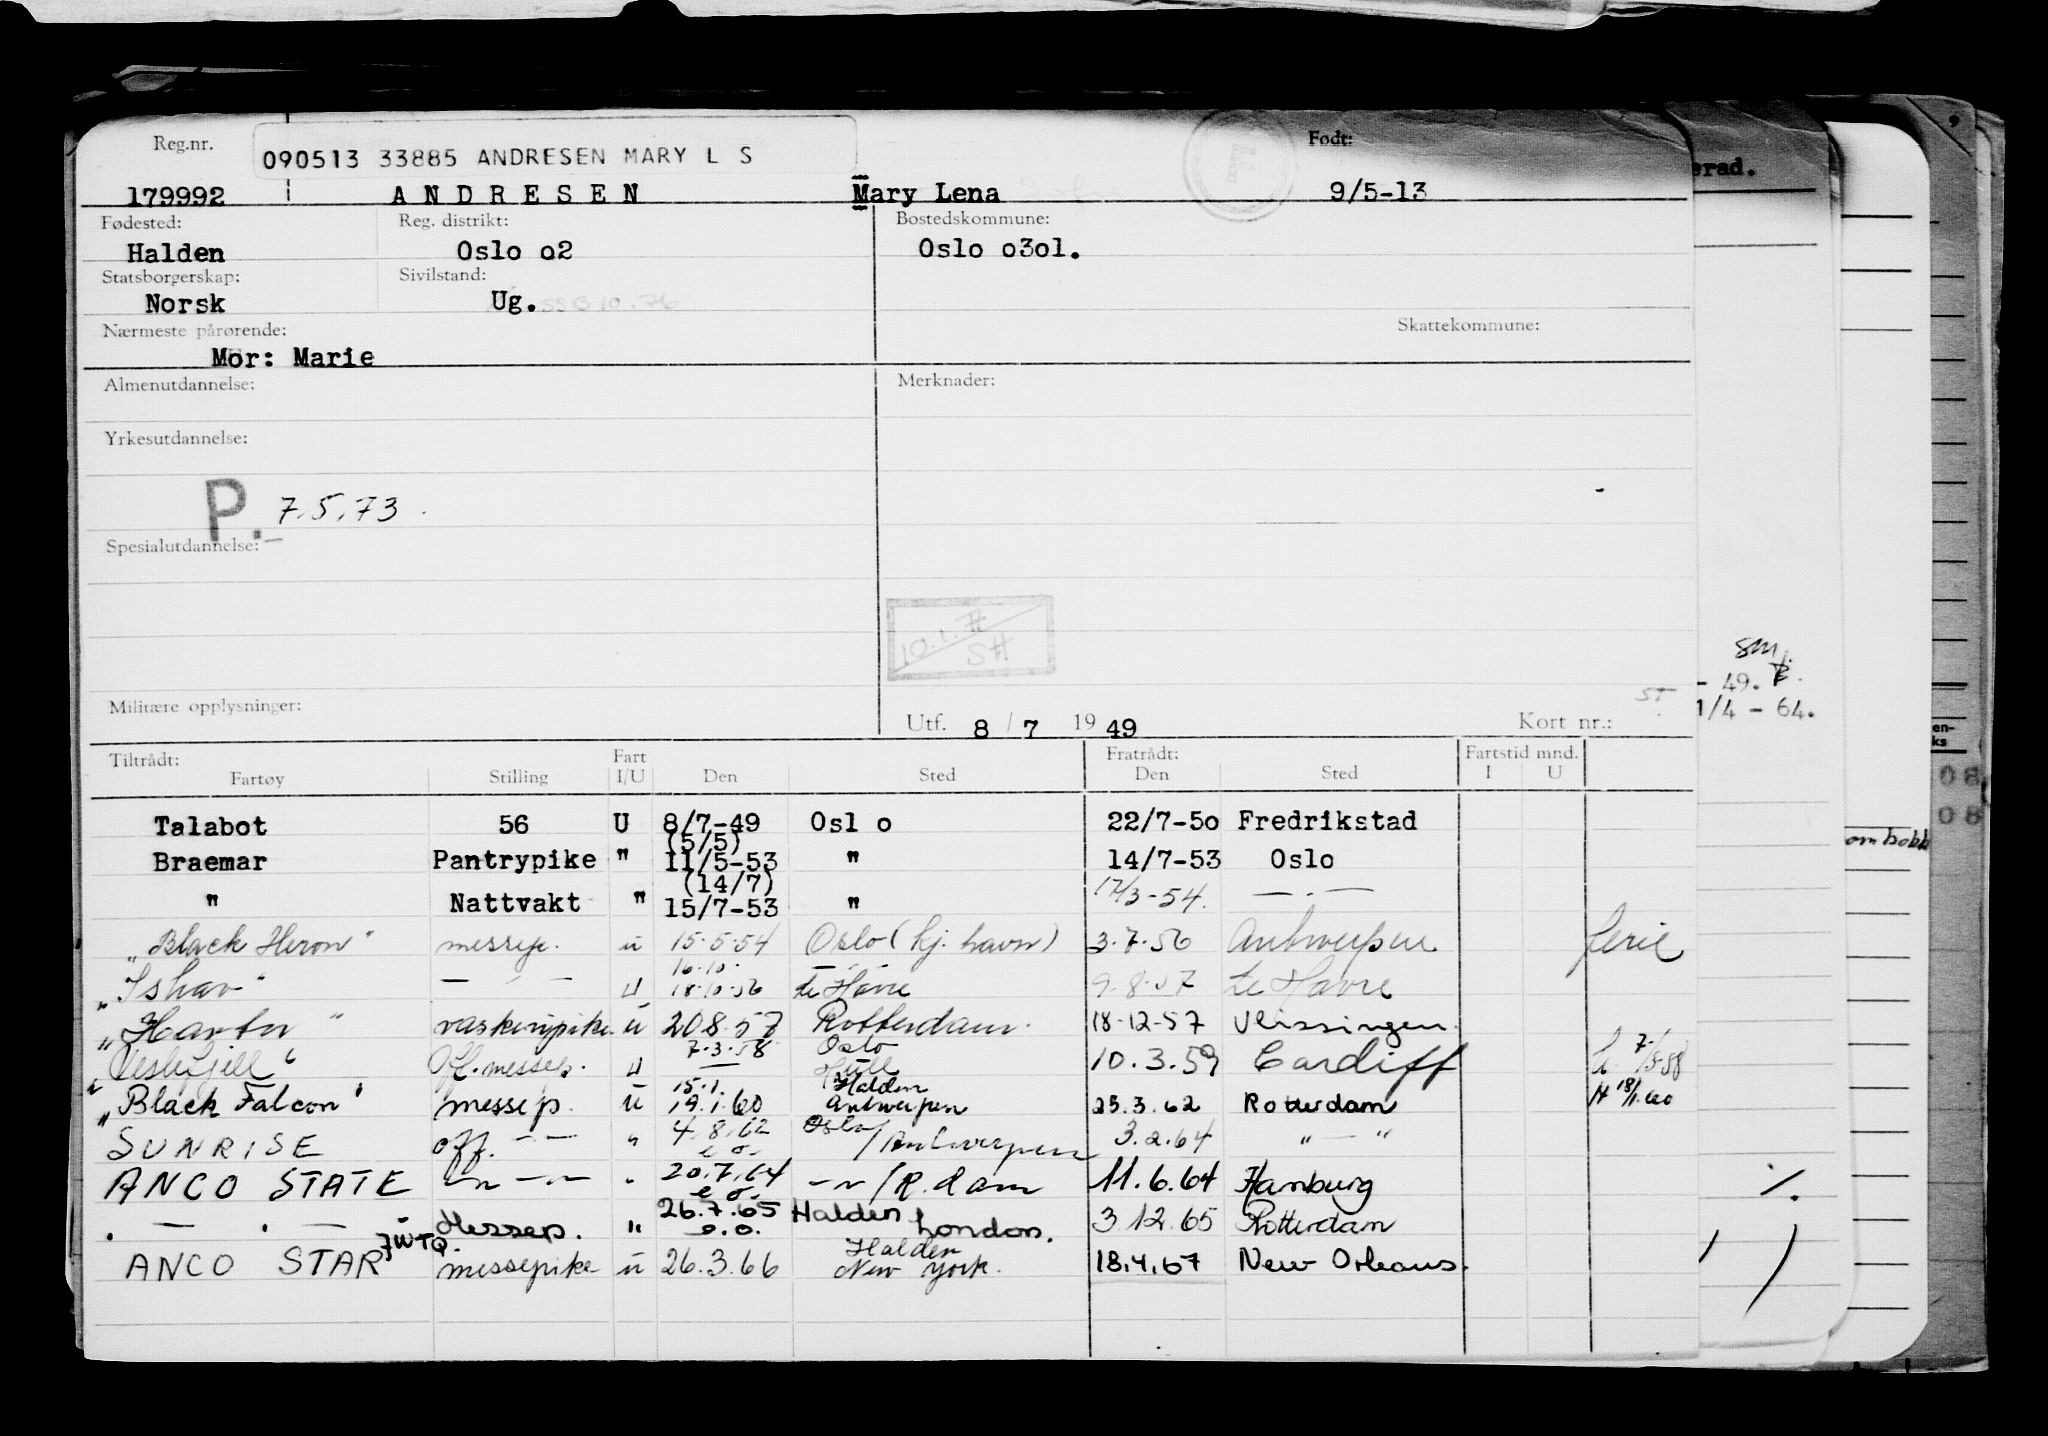 Reg.nr. Født:
090513 33885 ANDRESEN MARY L S
179992 ANDRESEN Mary Lena 9/5-13
Fødested: Reg. distrikt: Bostedskommune:
Halden Oslo o2 Oslo o3o1.
Statsborgerskap: Sivilstand:
Norsk Ug. SSB 10.76
Nærmeste pårørende: Skattekommune:
Mor: Marie
Almenutdannelse: Merknader:
Yrkesutdannelse:
P. 7.5.73.
Spesialutdannelse:
10.1.
SH
Militære opplysninger:
Utf. 8 / 7 1949 Kort nr.:
Tiltrådt: Fart Fratrådt: Fartstid mnd.
Fartøy Stilling I/U Den Sted Den Sted I U
Talabot 56 U 8/7-49 Oslo 22/7-50 Fredrikstad
(5/5)
Braemar Pantrypike " 11/5-53 " 14/7-53 Oslo
(14/7)
" Nattvakt " 15/7-53 " 17/3-54. — . —
"Black Heron" messep. u 15.5.54 Oslo (hj. havn) 3.7.56 Antwerpen ferie
16.10. —
"Ishav" — " — u 18.10.56 Le Havre 9.8.57 Le Havre
" u 20.8.57 Rotterdam. 18-12-57 Vlissingen.
7.3.58 Oslo
"Veslefjell" Off. messep. u — Hull 10.3.59 Cardiff
15.1. Halden
"Black Falcon" messep. u 19.1.60 Antwerpen 23.3.62 Rotterdam H 18/1.60
4.8.62 Oslo
SUNRISE off. — — " e o. / Antwerpen 3.2.64 " — "
ANCO STATE — " — — " — " 20.7.64 — " / R.dam 11.6.64 Hamburg
e o.
. — . — Messep. " 26.7.65 Halden 3.12.65 Rotterdam
e.o. London.
JWTQ. Halden
ANCO STAR messepike u 26.3.66 New York. 18.4.67 New Orleans.
erad.
sm.
- 49.
1/4 - 64.
en-
ks
08
08
om bokk